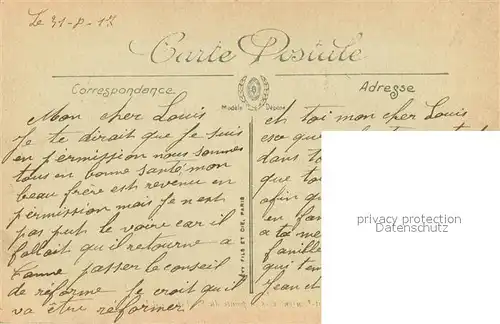 Le 31-8-17
Carte Postale
Correspondance
Adresse
Modèle Déposé
Mon cher Louis
Je te dirait que Je suis
en permission nous sommes
tous en bonne santé mon
beau frère est revenu en
permission mais Je n'est
pas put le voire car il
fallait qu'il retourne a
Vanne passer le conseil
de réforme Je croit qu'il
va être reformer
et toi mon cher Louis
esce que
dans to
que tou
afin qu
en fam
a ta me
famille
qui ten
Jean et
FILS ET CIE, PARIS
privacy protection